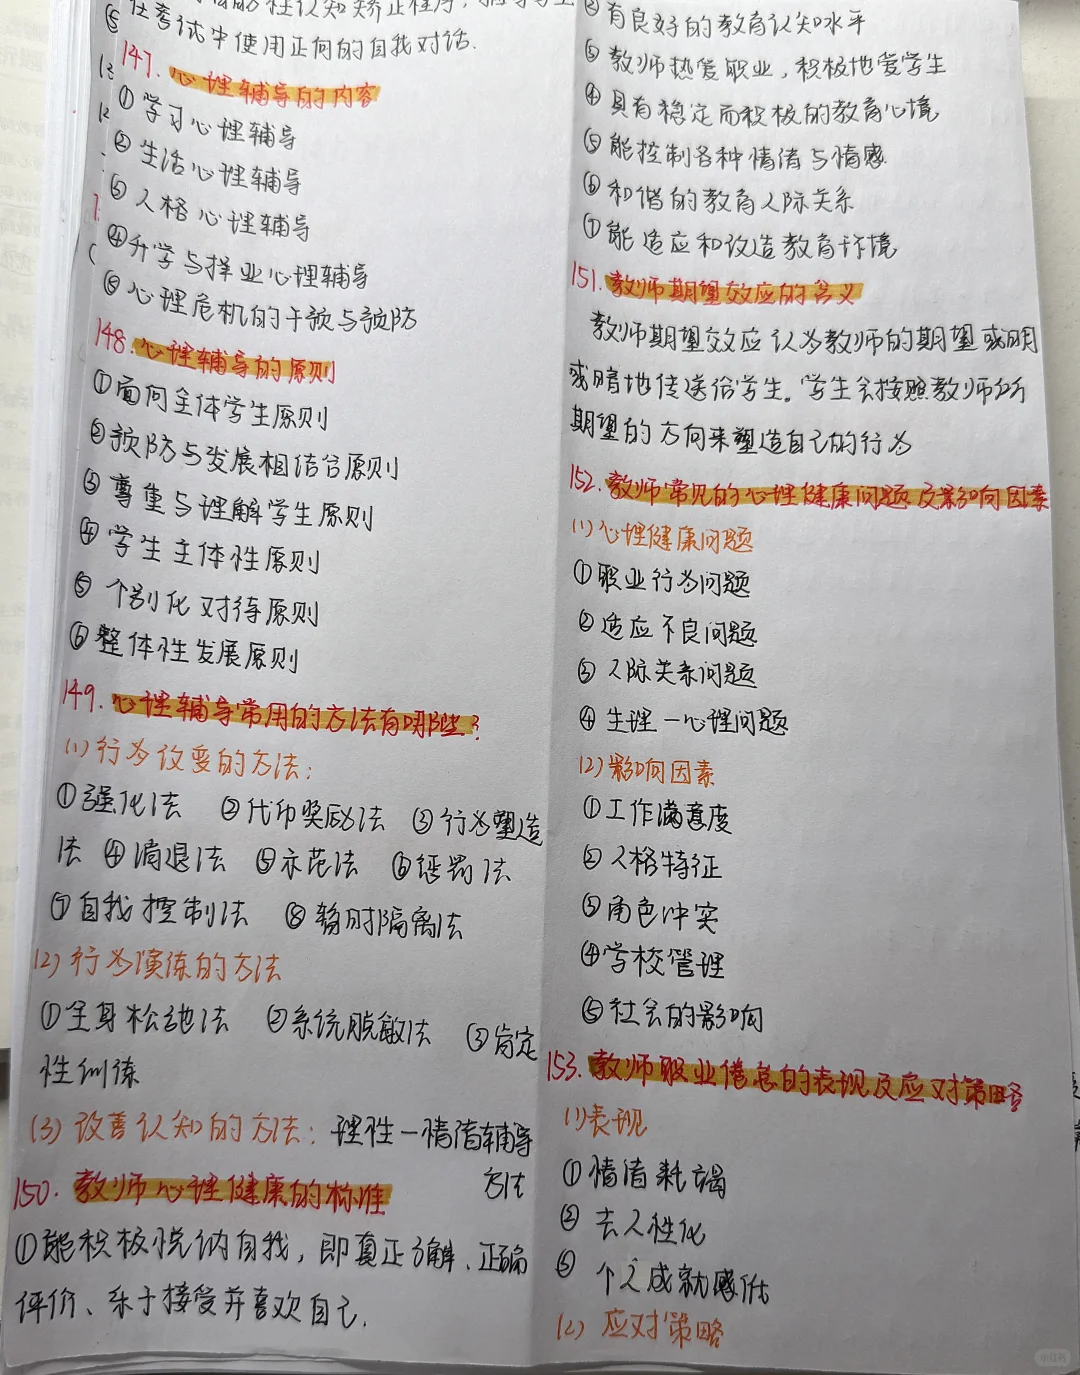 在考试中使用正向的自我对话.
147. 心理辅导的内容
①学习心理辅导
②生活心理辅导
③人格心理辅导
④升学与择业心理辅导
⑤心理危机的干预与预防
148. 心理辅导的原则
①面向全体学生原则
②预防与发展相结合原则
③尊重与理解学生原则
④学生主体性原则
⑤个别化对待原则
⑥整体性发展原则
149. 心理辅导常用的方法有哪些?
(1)行为改变的方法:
①强化法 ②代币奖励法 ③行为塑造
法 ④消退法 ⑤示范法 ⑥惩罚法
⑦自我控制法 ⑧暂时隔离法
(2)行为演练的方法
①全身松弛法 ②系统脱敏法 ③肯定
性训练
(3)改善认知的方法: 理性一情绪辅导
方法
150. 教师心理健康的标准
①能积极悦纳自我, 即真正了解、正确
评价、乐于接受并喜欢自己.
②有良好的教育认知水平
③教师热爱职业, 积极地爱学生
④具有稳定而积极的教育心境
⑤能控制各种情绪与情感
⑥和谐的教育人际关系
⑦能适应和改造教育环境
151. 教师期望效应的含义
教师期望效应认为教师的期望或明
或暗地传送给学生。学生会按照教师所
期望的方向来塑造自己的行为
152. 教师常见的心理健康问题及影响因素
(1)心理健康问题
①职业行为问题
②适应不良问题
③人际关系问题
④生理一心理问题
(2)影响因素
①工作满意度
②人格特征
③角色冲突
④学校管理
⑤社会的影响
153. 教师职业倦怠的表现及应对策略
(1)表现
①情绪耗竭
②去人性化
③个人成就感低
(2)应对策略
小红书